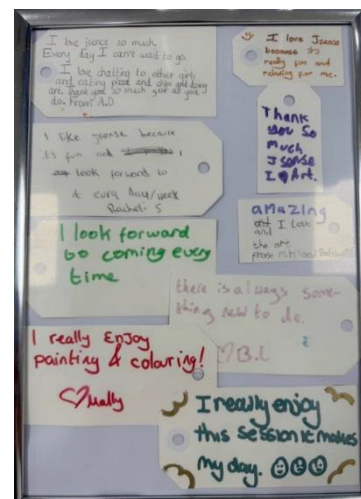 I love jsence so much.
Every day I can't wait to go.
I love chatting to other girls
and eating pizza and chips and doing
art. thank you so much for all you
do. From A.D
I love Jsence
because it's
really fun and
relaxing for me.
Thank
you so
much
Jsense
I Art.
I like jsense because
it's fun and
look forward to
it every day/week
Rachel. S
amazing
I love
and
the art
from
I look forward
to coming every
time
there is always some-
thing new to do.
B.L
I really Enjoy
painting & colouring!
Mally
I really enjoy
this session it makes
my day.